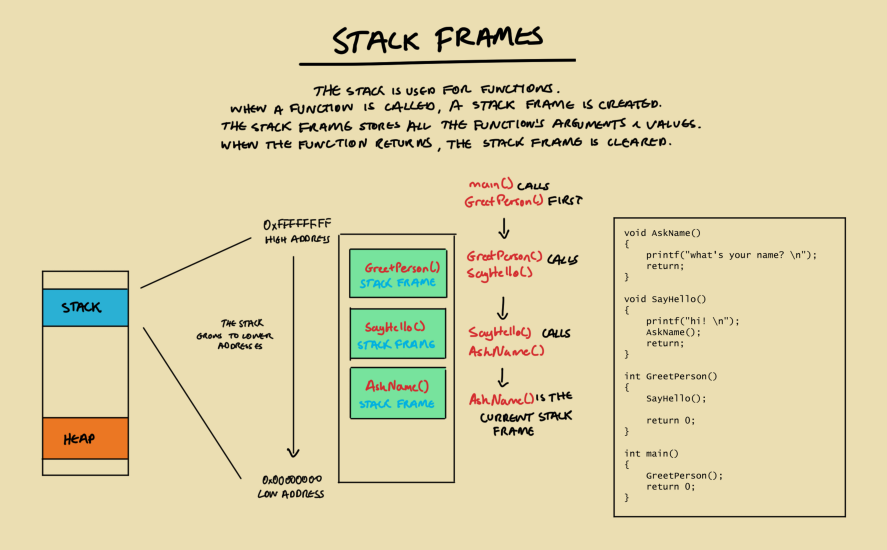 STACK FRAMES
THE STACK IS USED FOR FUNCTIONS.
WHEN A FUNCTION IS CALLED, A STACK FRAME IS CREATED.
THE STACK FRAME STORES ALL THE FUNCTION'S ARGUMENTS & VALUES.
WHEN THE FUNCTION RETURNS, THE STACK FRAME IS CLEARED.
STACK
HEAP
0xFFFFFFFF
HIGH ADDRESS
THE STACK
GROWS TO LOWER
ADDRESSES
0x00000000
LOW ADDRESS
GreetPerson()
STACK FRAME
SayHello()
STACK FRAME
AskName()
STACK FRAME
main() CALLS
GreetPerson() FIRST
GreetPerson() CALLS
SayHello()
SayHello() CALLS
AskName()
AskName() IS THE
CURRENT STACK
FRAME
void AskName()
{
printf("what's your name? \n");
return;
}
void SayHello()
{
printf("hi! \n");
AskName();
return;
}
int GreetPerson()
{
SayHello();
return 0;
}
int main()
{
GreetPerson();
return 0;
}